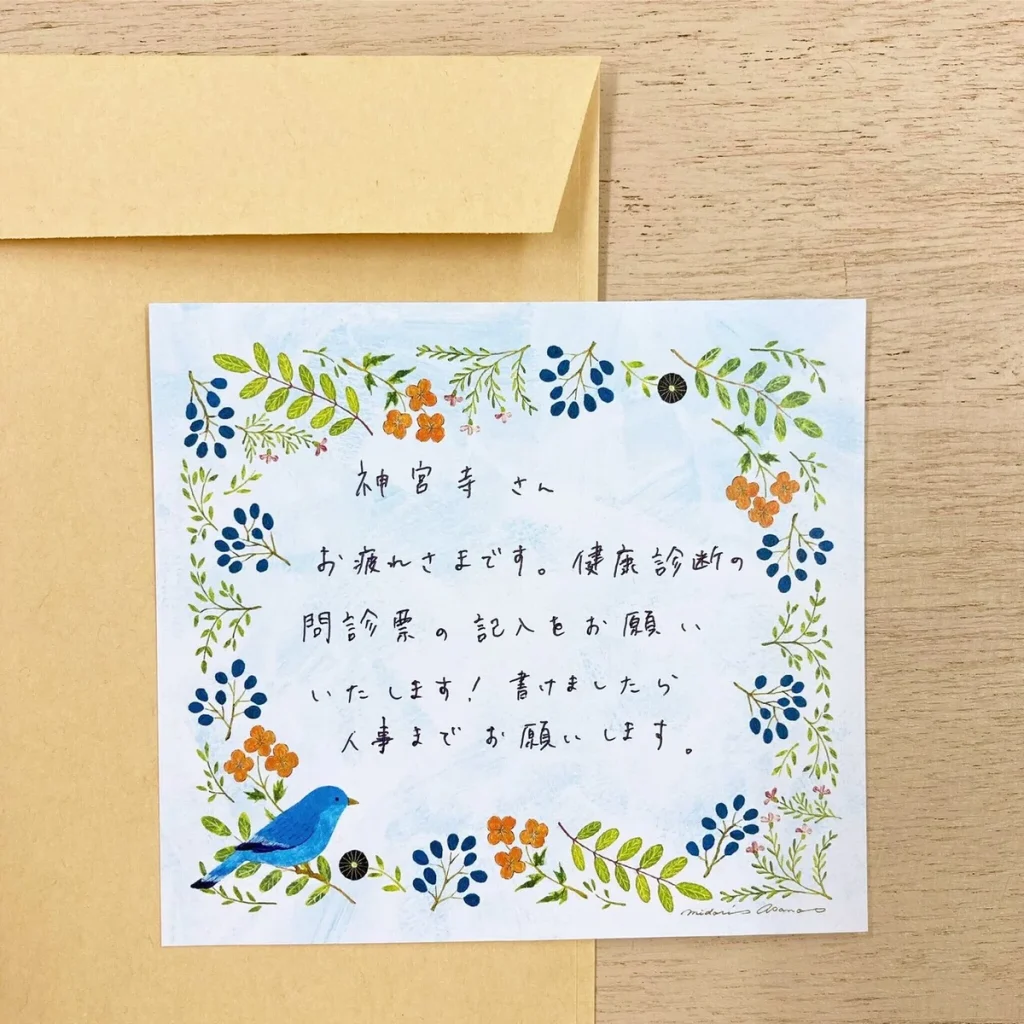 神宮寺 さん
お疲れさまです。健康診断の
問診票の記入をお願い
いたします! 書けましたら
人事までお願いします。
midori asano